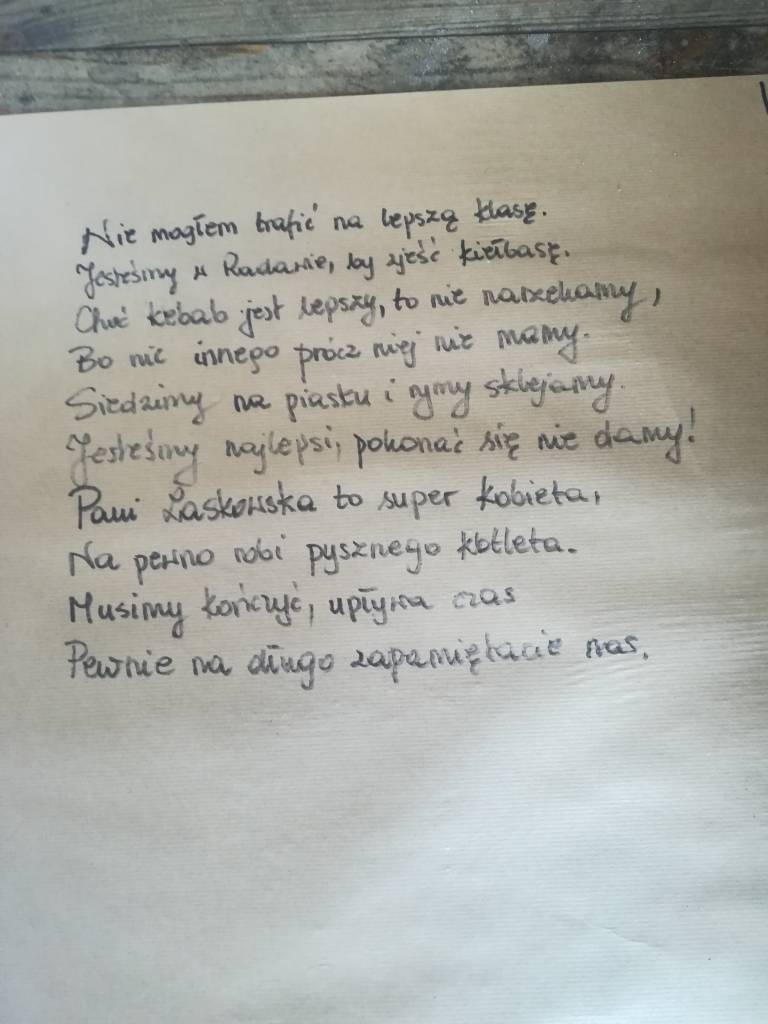 Nie mogłem trafić na lepszą klasę.
Jesteśmy w Radawie, by zjeść kiełbasę.
Choć kebab jest lepszy, to nie narzekamy,
Bo nic innego prócz niej nie mamy.
Siedzimy na piasku i rymy sklejamy.
Jesteśmy najlepsi, pokonać się nie damy!
Pani Laskowska to super kobieta,
Na pewno robi pysznego kotleta.
Musimy kończyć, upływa czas
Pewnie na długo zapamiętacie nas.